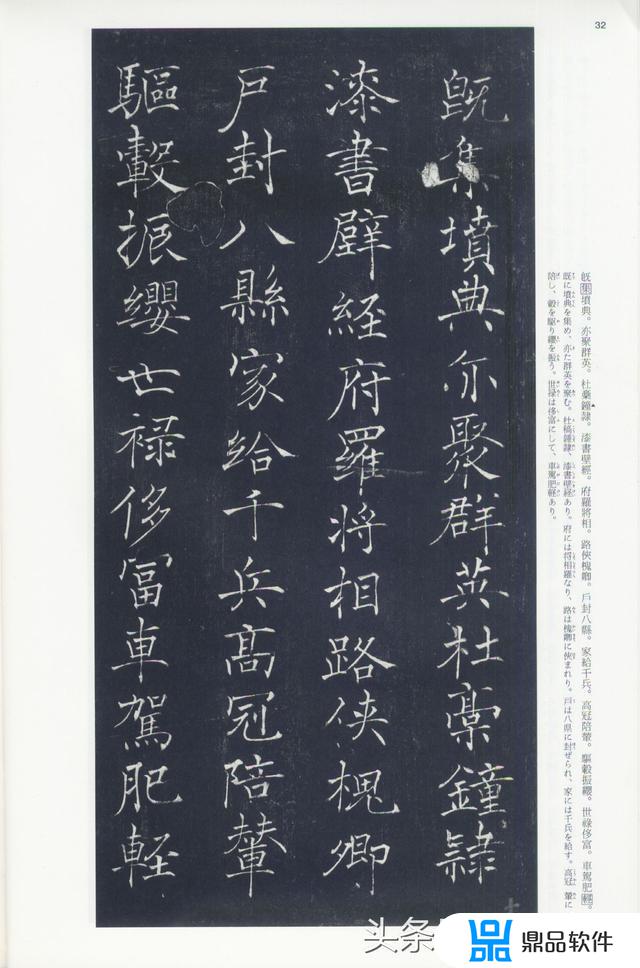 32
既集墳典亦聚群英杜稾鐘隸
漆書壁経府羅將相路侠槐卿
戸封八縣家給千兵高冠陪輦
驅轂振纓世禄侈冨車駕肥軽
既集墳典。亦聚群英。杜稾鐘隷。漆書壁經。府羅將相。路侠槐卿。戶封八縣。家給千兵。高冠陪輦。驅轂振纓。世祿侈富。車駕肥輕。
既に墳典を集め、亦た群英を聚む。杜稿鍾隷、漆書壁経あり。府には将相羅なり、路は槐卿に侠まれり。戸は八県に封ぜられ、家には千兵を給す。高冠 輦に
陪し、轂を駆り纓を振う。世禄は侈富にして、車駕肥軽あり。
头条
鼎品软件